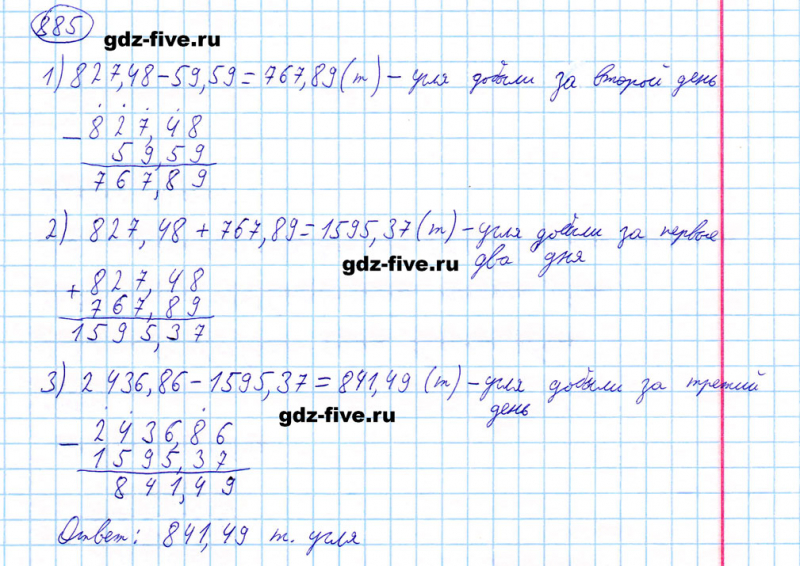 885
gdz-five.ru
1) 827,48 - 59,59 = 767,89 (т) - угля добыли за второй день
- 827,48
59,59
767,89
2) 827,48 + 767,89 = 1595,37 (т) - угля добыли за первые
два дня
gdz-five.ru
+ 827,48
767,89
1595,37
3) 2436,86 - 1595,37 = 841,49 (т) - угля добыли за третий
день
gdz-five.ru
- 2436,86
1595,37
841,49
Ответ: 841,49 т. угля